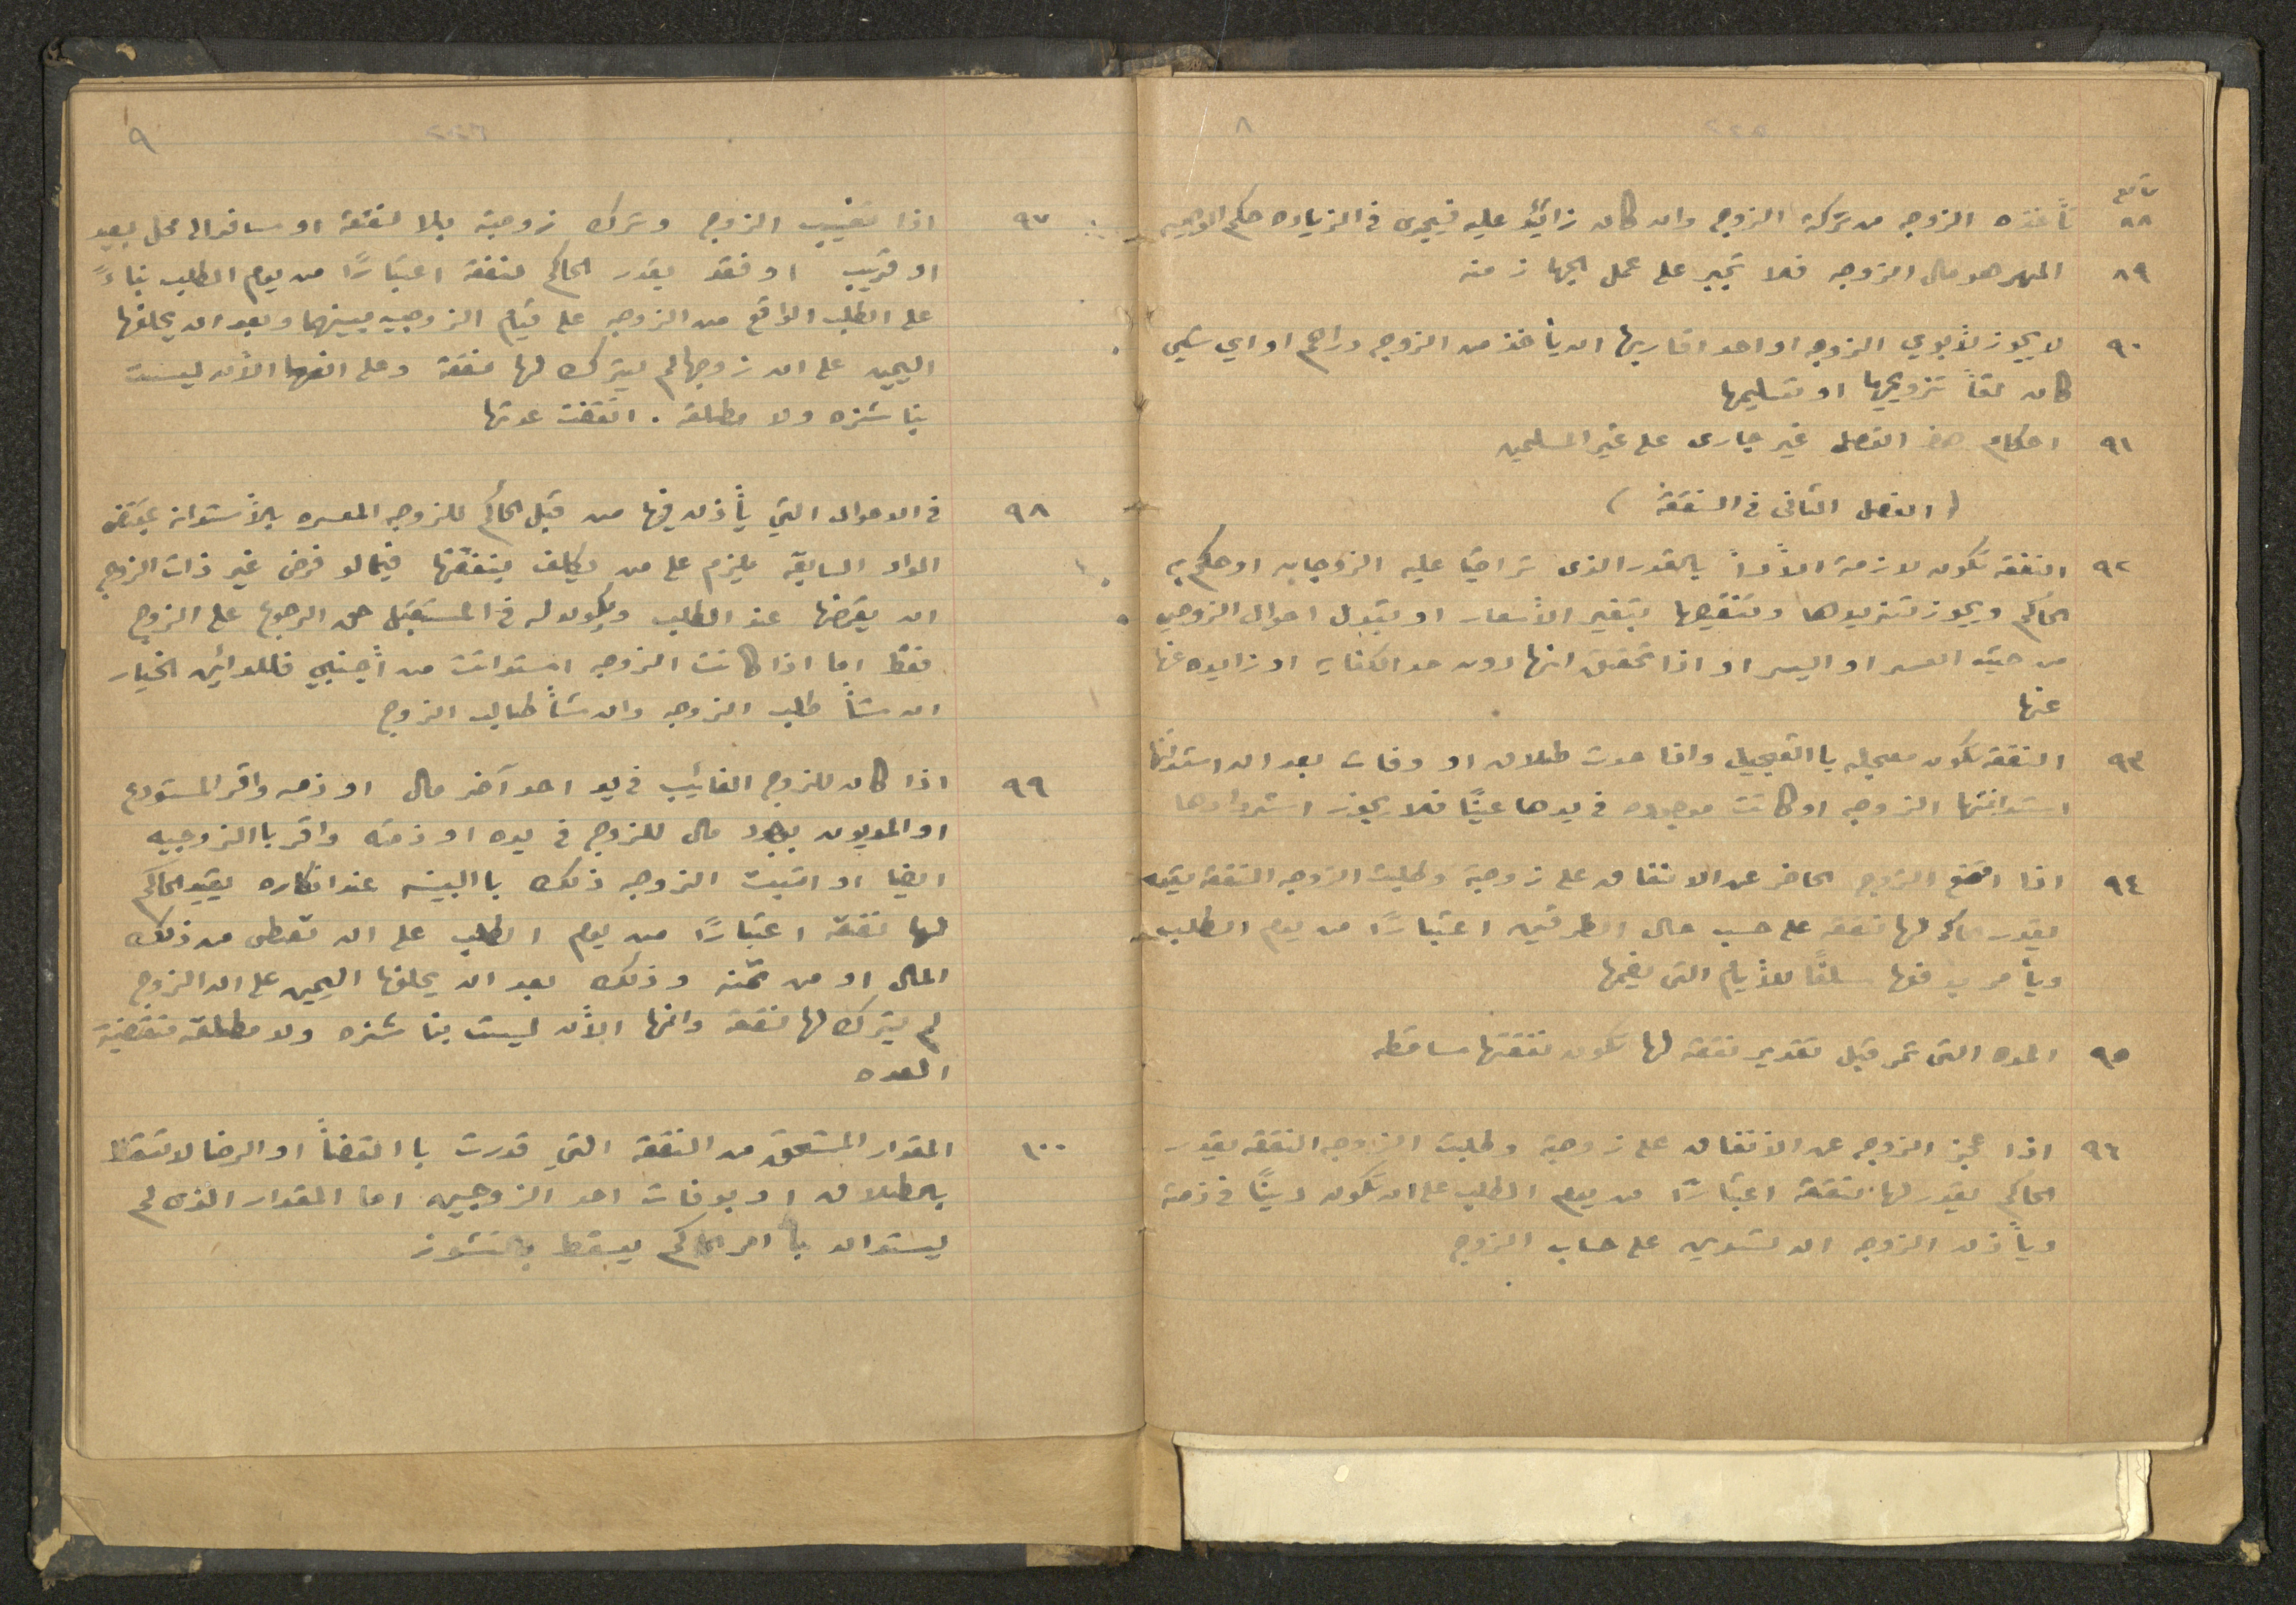 ٨
تابع
٨٨ تأخذه الزوجه من تركة الزوج وان كان زائداً عليه فيجرى فى الزياده حكم الوصيه
٨٩ المهر هو مال الزوجه فلا تجبر على عمل الجهاز منه
٩٠ لا يجوز لأبوي الزوجه او احد اقاربها ان يأخذ من الزوج دراهم او اي شيئ
كان لقأ تزويجها او تسليمها
٩١ احكام هذا الفصل غير جارى على غير المسلمين
(الفصل الثانى فى النفقة)
٩٢ النفقه تكون لازمة الأداً بالقدر الذى تراضيا عليه الزوجان او حكم به
الحاكم ويجوز تزييدها وتنقيصها بتغير الأسعار او بتبدل احوال الزوجين
من حيث العسر او اليسر او اذا تحقق انها دون حد الكفايه او زايده عنها
عنها
٩٣ النفقه تكون معجله باالتعجيل واذا حدث طلاق او وفات بعد ان استدانتها
استدانتها الزوجه او كانت موجوده فى يدها عيناً فلا يجوز استردادها
٩٤ اذا امتنع الزوج الحاضر عن الانفاق على زوجتة وطلبت الزوجه النفقه
يقدر الحاكم لها نفقه على حسب حال الطرفين اعتباراً من يوم الطلب
ويأمر بدفعها سلفاً للأيام التى يعينها
٩٥ المده التى تمر قبل تقدير نفقه لها تكون نفقتها ساقطه
٩٦ اذا عجز الزوج عن الأنفاق على زوجتة وطلبت الزوجه النفقه يقدر
الحاكم يقدر لها نفقة اعتباراً من يوم الطلب على ان تكون ديناً فى ذمته
ويأذن الزوجه ان تستدين على حساب الزوج
٩
٩٧ اذا تغييب الزوج وترك زوجتة بلا نفقة او سافر الى محل بعيد
او قريب او فقد يقدر الحاكم نفقة اعتباراً من يوم الطلب بناءً
على الطلب الواقع من الزوجه على قيام الزوجيه بينهما وبعد ان يحلفها
اليمين على ان زوجها لم يترك لها نفقة وعلى انها الأن ليست
بناشزه ولا مطلقة . انقضت عدتها
٩٨ فى الاحوال التي يأذن فيها من قبل الحاكم للزوجه المعسره بالأستدانه بمقتضى
المواد السابقه يلزم على من يكلف بنفقتها فيما لو فرض غير ذات الزوج
ان يقرضها عند الطلب ويكون له فى المستقبل حق الرجوع على الزوج
فقط اما اذا كانت الزوجه استدانت من أجنبي فاللدائن الخيار
ان شأ طلب الزوجه وان شأ طالب الزوج
٩٩ اذا كان للزوج الغائيب فى يد احد آخر مال او ذمه واقر المستودع
او المديون بوجود مال للزوج فى يده او ذمته واقر باالزوجيه
ايضا او اثبتت الزوجه ذلك باالبينه عند انكاره يقيد الحاكم
لها نفقة اعتباراً من يوم الطلب على ان تعطى من ذلك
المال او من ثمنه وذلك بعد ان يحلفها اليمين على ان الزوج
لم يترك لها نفقة وانها الأن ليست بناشزه ولا مطلقة منقضية
العده
١٠٠ المقدار المستحق من النفقه التي قدرت باالقضأً او الرضا لا تسقط
بالطلاق او بوفات احد الزوجين اما المقدار الذى لم
يستدان بأمر الحاكم يسقط بالنشوز